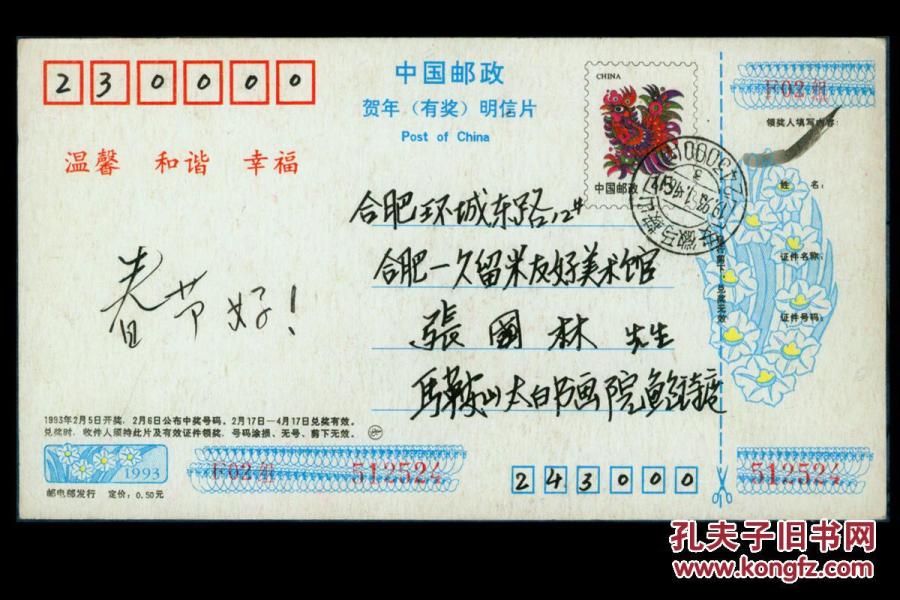 230000
中国邮政
贺年（有奖）明信片
Post of China
温馨 和谐 幸福
CHINA
中国邮政
F02组
领奖人填写内容：
姓 名：
证件名称：
证件号码：
剪下，兑奖无效
合肥环城东路12#
合肥—久留米友好美术馆
張國林 先生
马鞍山太白书画院鲍
春节好！
1993年2月5日开奖，2月6日公布中奖号码，2月17日—4月17日兑奖有效。
兑奖时，收件人须持此片及有效证件领奖，号码涂损、无号、剪下无效。
1993
邮电部发行 定价：0.50元
F02组 512524
243000
512524
孔夫子旧书网
www.kongfz.com